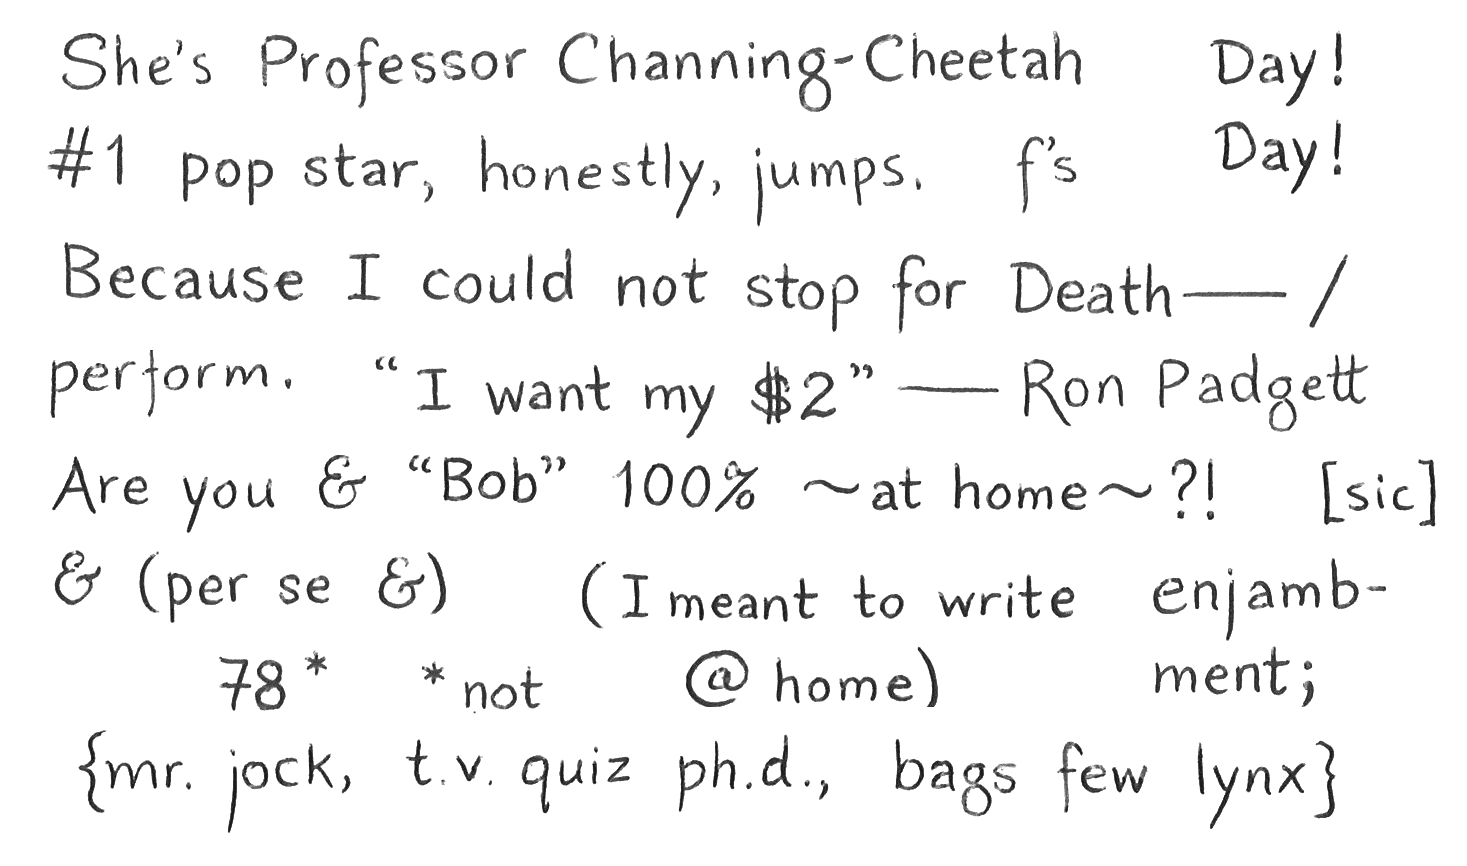 She's Professor Channing-Cheetah Day!
#1 pop star, honestly, jumps. f's Day!
Because I could not stop for Death— /
perform. “I want my $2” — Ron Padgett
Are you & “Bob” 100% ~at home~?! [sic]
& (per se &) (I meant to write enjamb-
78* *not @ home) ment;
{mr. jock, t.v. quiz ph.d., bags few lynx}